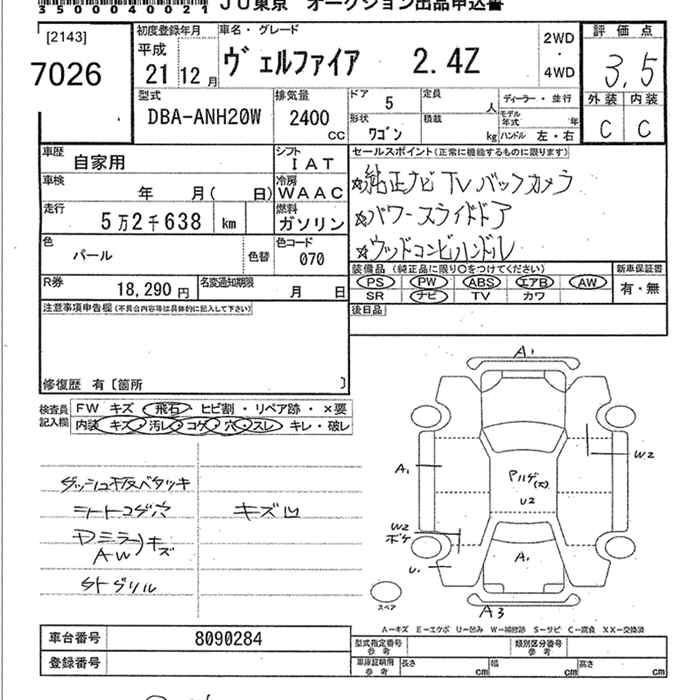 3500040021 JU東京 オークション出品申込書
[2143]
7026
初度登録年月
平成
21 12月
車名・グレード
ヴェルファイア 2.4Z
2WD
・
4WD
評価点
3,5
外装 内装
C C
型式
DBA-ANH20W
排気量
2400
CC
ドア 5
定員 人
ディーラー・並行
モデル年式 年
形状
ワゴン
積載 kg
ハンドル 左・右
車歴
自家用
シフト
IAT
車検
年 月( 日)
冷房
WAAC
走行
5万2千638 km
燃料
ガソリン
色
パール
色替
色コード
070
R券
18,290円
名変通知期限
月 日
セールスポイント(正常に機能するものに限ります)
☆純正ナビ TV バックカメラ
☆パワースライドドア
☆ウッドコンビハンドル
装備品 (純正品に限り○をつけてください)
新車保証書
PS PW ABS エアB AW
SR ナビ TV カワ
有・無
後日品
注意事項申告欄(不具合内容等は具体的に記入して下さい)
修復歴 有〔箇所 〕
検査員
記入欄
FW キズ 飛石・ヒビ割・リペア跡・×要
内装 キズ・汚レ・コゲ・穴・スレ・キレ・破レ
ダッシュ板ベタツキ
シートコゲ穴
キズ凹
ドミラー
AW)キズ
A1
A1
W2
W2
ボケ
U1
U2
A1
A3
スペア
A-キズ E-エクボ U-凹み W-補修跡 S-サビ C-腐食 XX-交換済
車台番号
8090284
登録番号
型式指定番号
参考
類別区分番号
参考
車庫証明用
参考
長さ cm
幅 cm
高さ cm